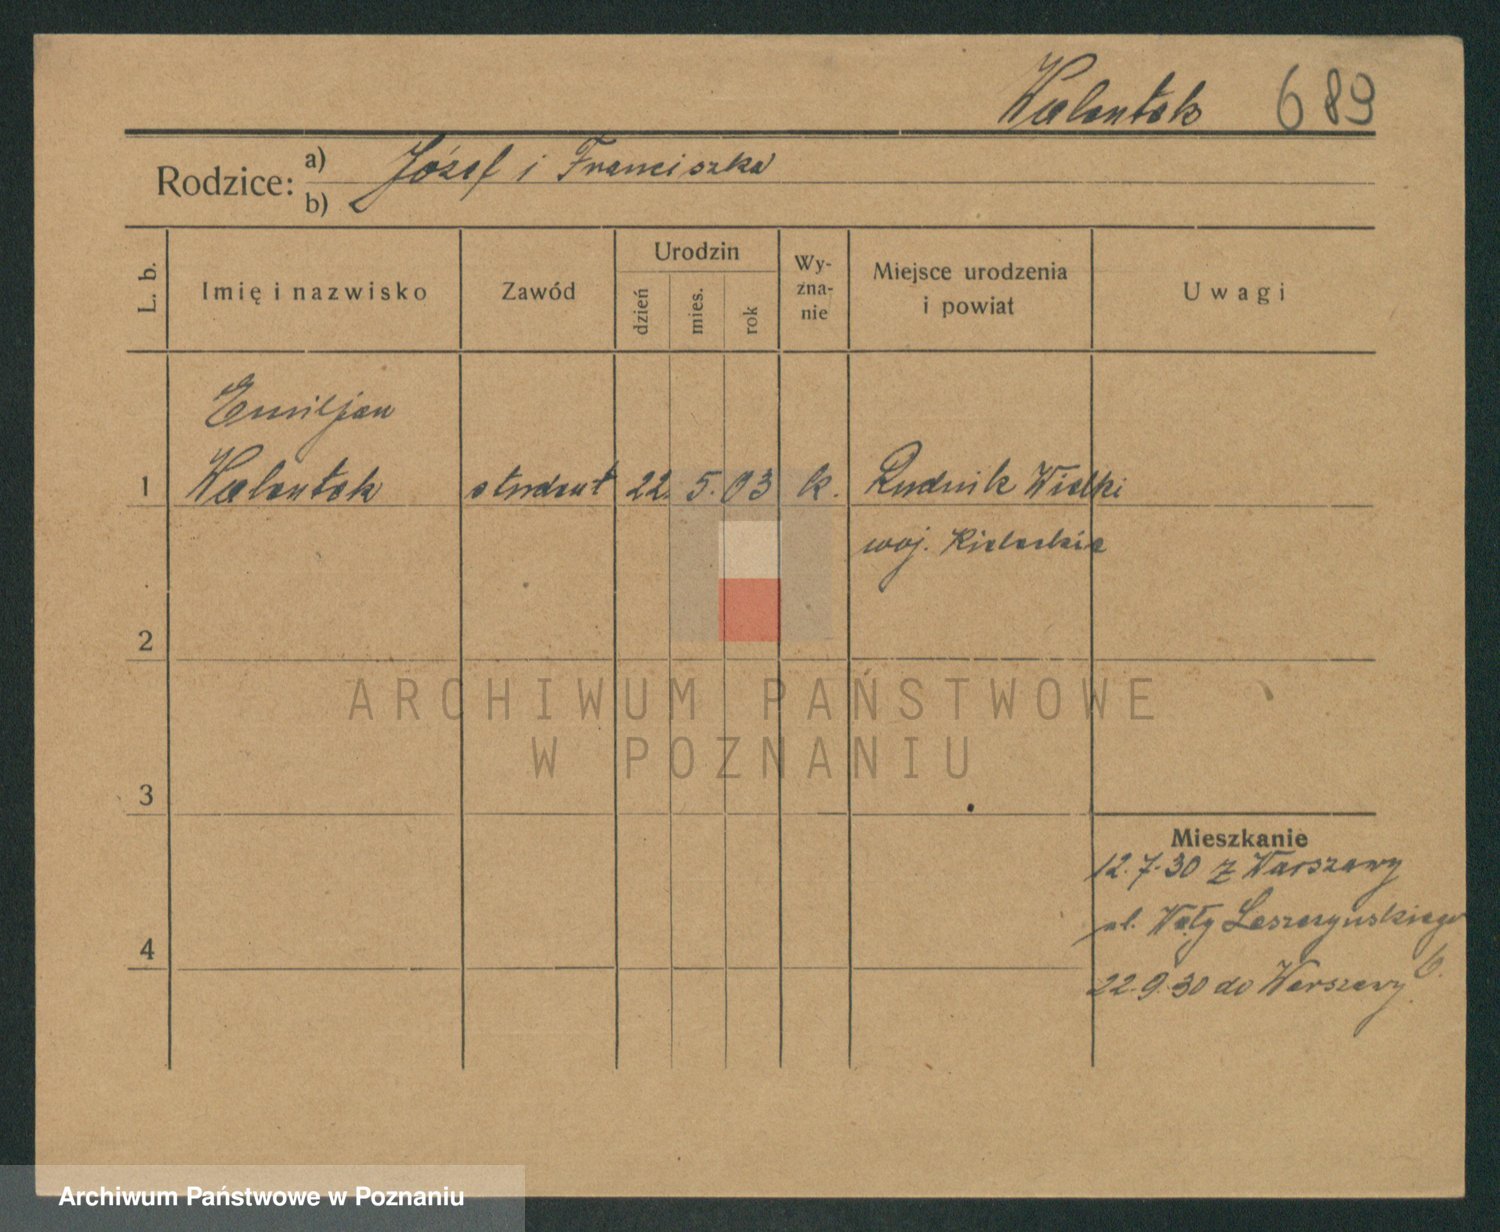 Walentek 689
Rodzice: a) Józef i Franciszka
b)
L. b.
Imię i nazwisko
Zawód
Urodzin
dzień
mies.
rok
Wy-
zna-
nie
Miejsce urodzenia
i powiat
Uwagi
Emiljan
1 Walentek student 22. 5. 03 k. Rudnik Wielki
woj. Kieleckie
2
ARCHIWUM PAŃSTWOWE
W POZNANIU
3
Mieszkanie
12.7.30 z Warszawy
ul. Wały Leszczyńskiego
6.
4
22.9.30 do Warszawy
Archiwum Państwowe w Poznaniu